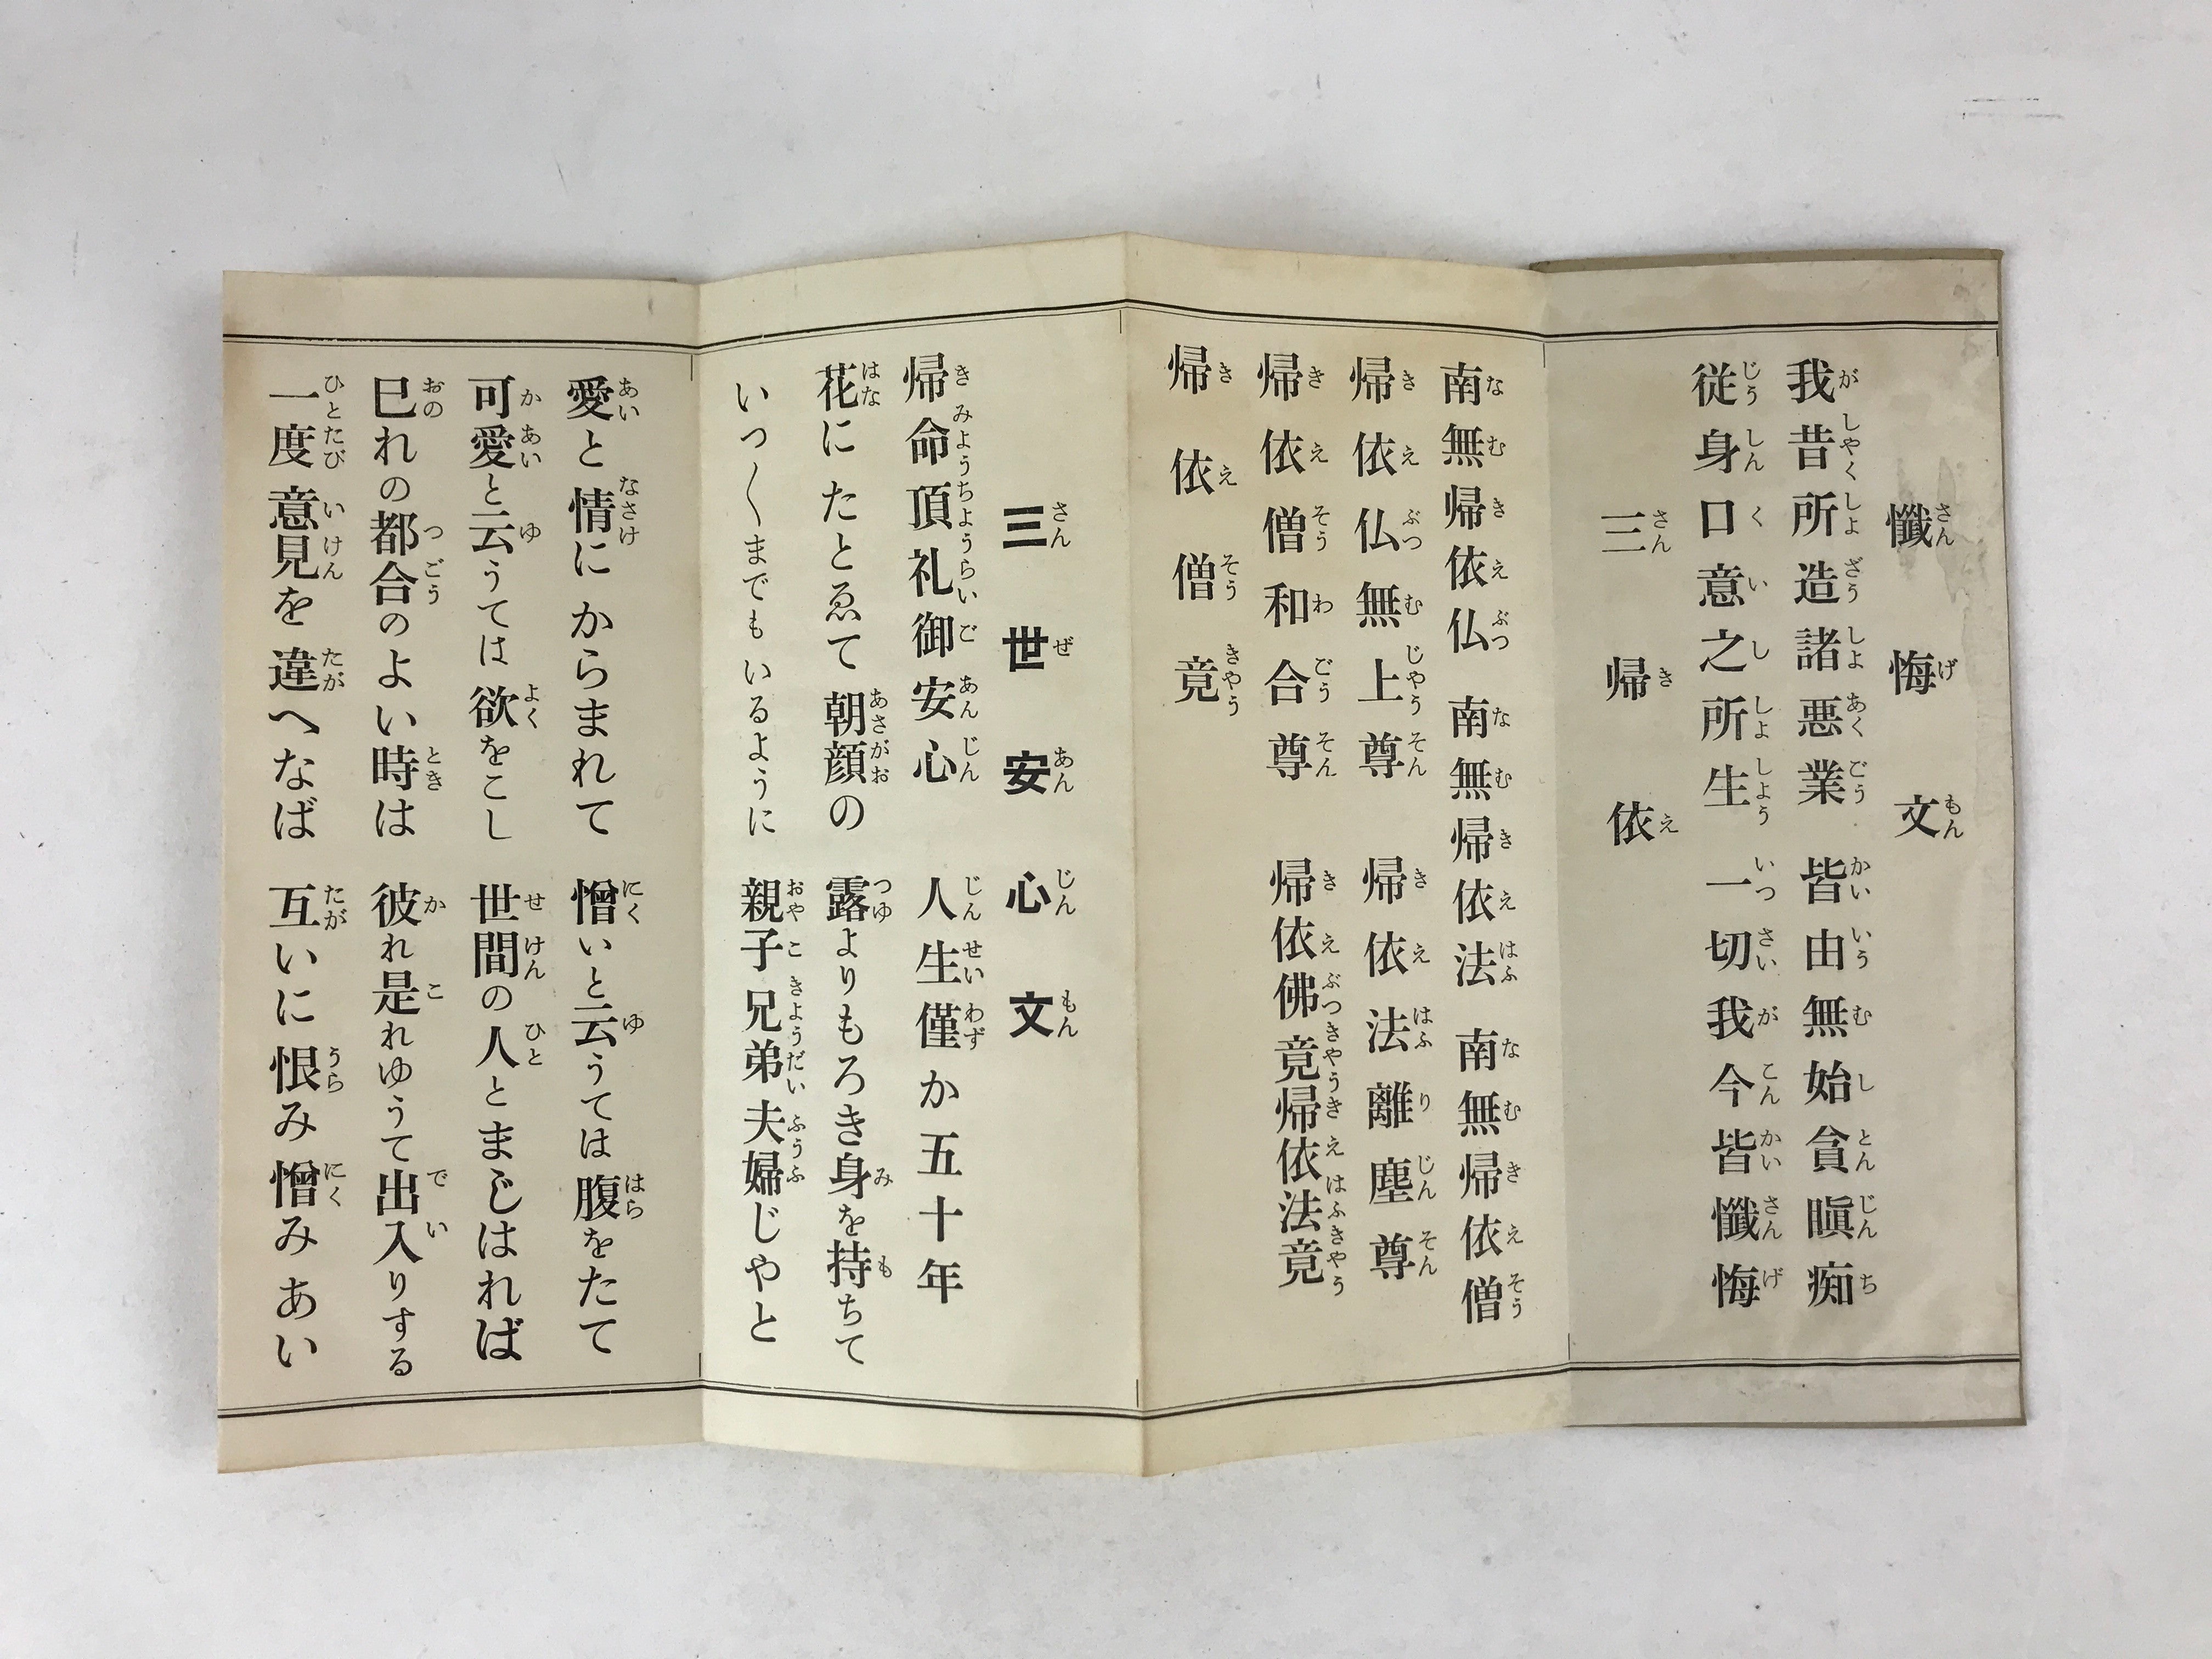 懺悔文
我昔所造諸悪業 皆由無始貪瞋痴
従身口意之所生 一切我今皆懺悔
三帰依
南無帰依仏 南無帰依法 南無帰依僧
帰依仏無上尊 帰依法離塵尊
帰依僧和合尊 帰依佛竟帰依法竟
帰依僧竟
三世安心文
帰命頂礼御安心 人生僅か五十年
花にたとゑて朝顔の 露よりもろき身を持ちて
いつ〱までもいるように 親子兄弟夫婦じやと
愛と情にからまれて 憎いと云うては腹をたて
可愛と云うては欲をこし 世間の人とまじはれば
巳れの都合のよい時は 彼れ是れゆうて出入りする
一度意見を違へなば 互いに恨み憎みあい